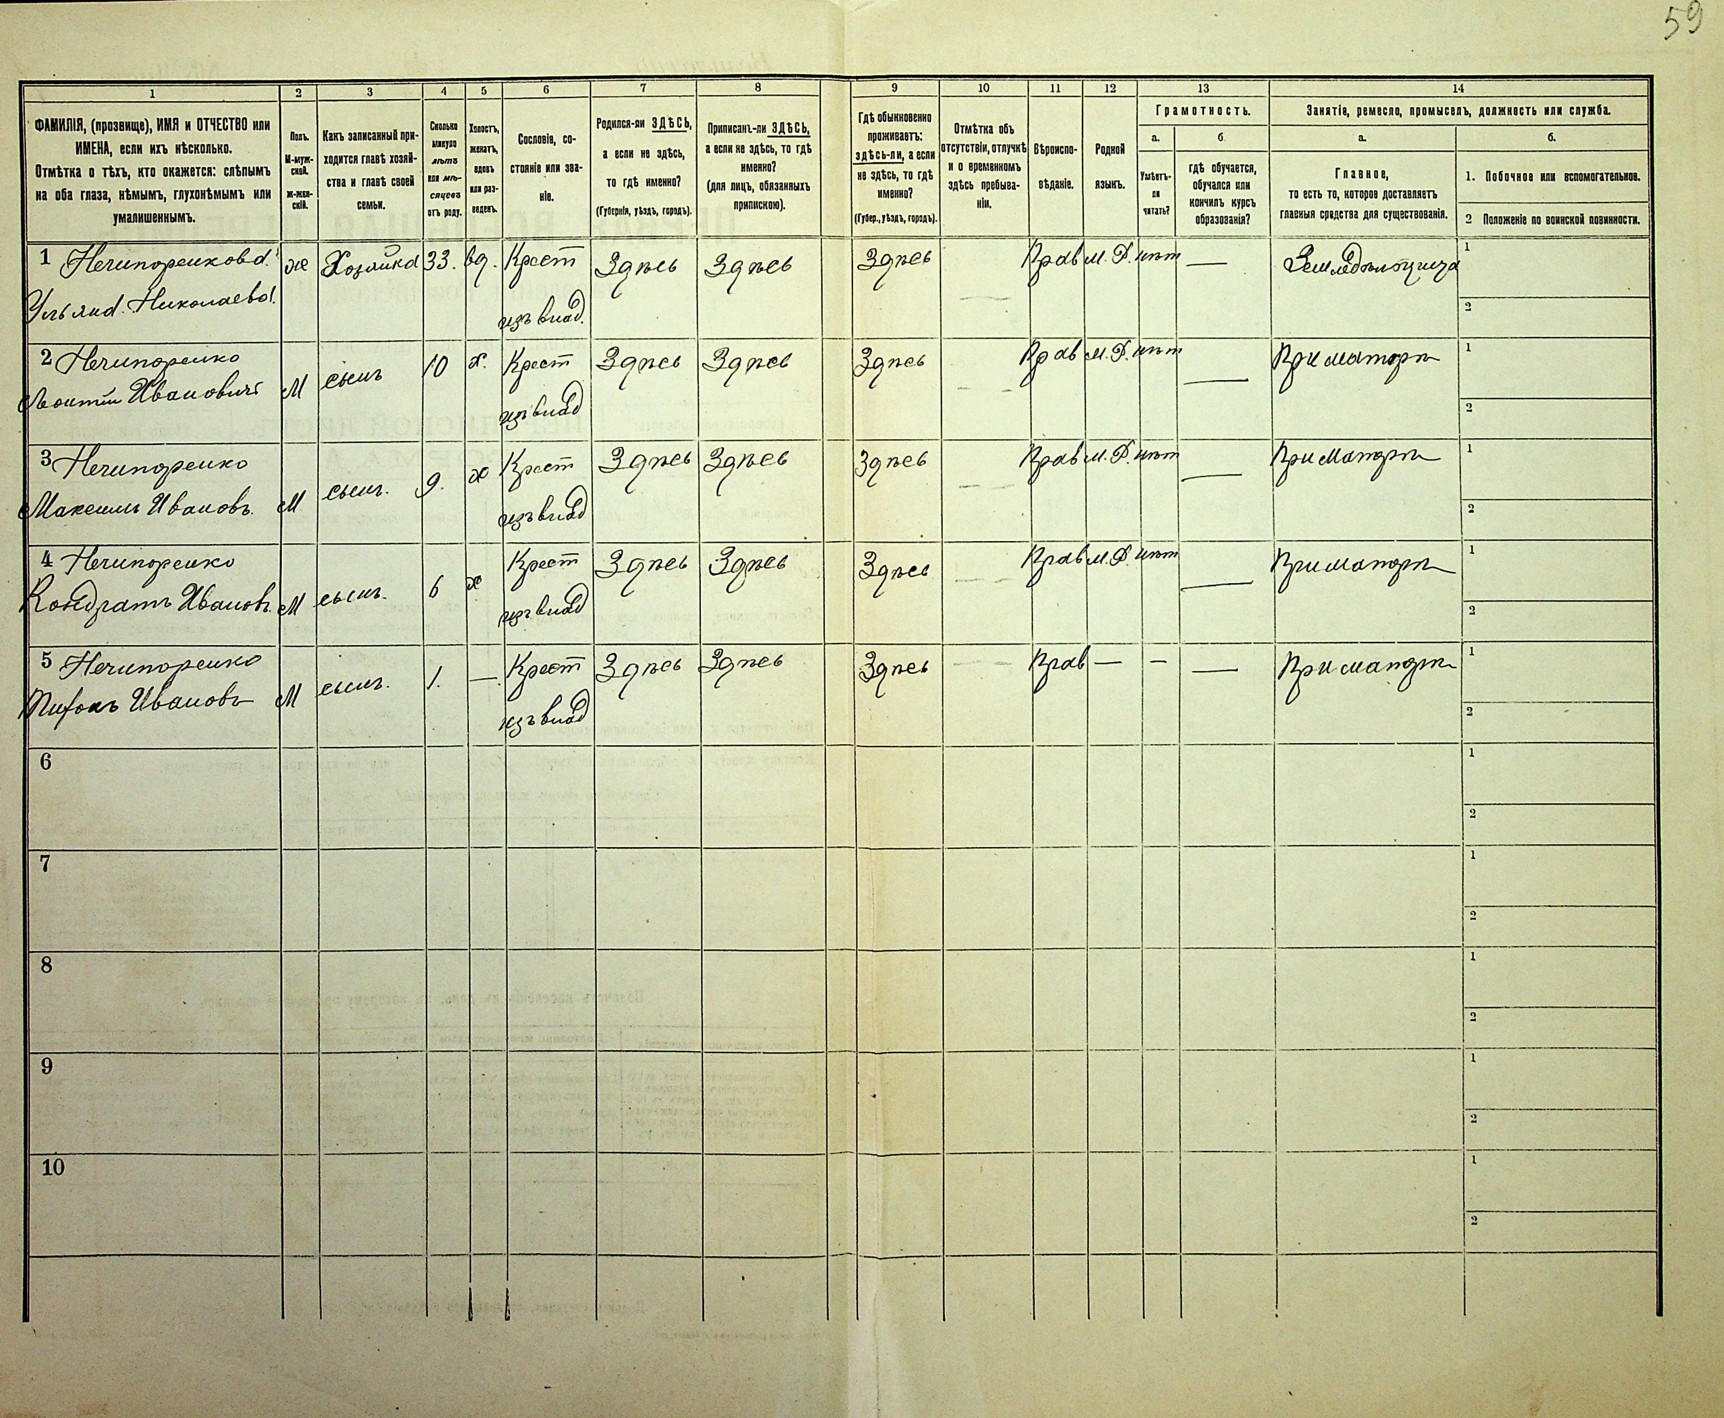 59
1 2 3 4 5 6 7 8 9 10 11 12 13 14
ФАМИЛІЯ, (прозвище), ИМЯ и ОТЧЕСТВО или
ИМЕНА, если ихъ нѣсколько.
Отмѣтка о тѣхъ, кто окажется: слѣпымъ
на оба глаза, нѣмымъ, глухонѣмымъ или
умалишеннымъ.
Полъ.
М-муж-
ской.
Ж-жен-
скій.
Какъ записанный при-
ходится главѣ хозяй-
ства и главѣ своей
семьи.
Сколько
минуло
лѣтъ
или мѣ-
сяцевъ
отъ роду.
Холостъ,
женатъ,
вдовъ
или раз-
веденъ.
Сословіе, со-
стояніе или зва-
ніе.
Родился-ли ЗДѢСЬ,
а если не здѣсь,
то гдѣ именно?
(Губернія, уѣздъ, городъ).
Приписанъ-ли ЗДѢСЬ,
а если не здѣсь, то гдѣ
именно?
(для лицъ, обязанныхъ
припискою).
Гдѣ обыкновенно
проживаетъ:
здѣсь-ли, а если
не здѣсь, то гдѣ
именно?
(Губер., уѣздъ, городъ).
Отмѣтка объ
отсутствіи, отлучкѣ
и о временномъ
здѣсь пребыва-
ніи.
Вѣроиспо-
вѣданіе.
Родной
языкъ.
Грамотность.
а. б
Умѣетъ-
ли
читать?
гдѣ обучается,
обучался или
кончилъ курсъ
образованія?
Занятія, ремесло, промыселъ, должность или служба.
а. б.
Главное,
то есть то, которое доставляетъ
главныя средства для существованія.
1. Побочное или вспомогательное.
2 Положеніе по воинской повинности.
1 Нечипоренкова ж Хозяйка 33. вд. Крест Здѣсь Здѣсь Здѣсь — Прав м. Р. нѣт — Земледѣлъчица 1
Ульяна Николаева изъ влад. 2
2 Нечипоренко М сынъ 10 х. Крест Здѣсь Здѣсь Здѣсь — Прав м. Р. нѣт — При матери 1
Леонтій Ивановичъ изъ влад 2
3 Нечипоренко М сынъ. 9. х Крест Здѣсь Здѣсь Здѣсь — Прав м. Р. нѣт — При матери 1
Максимъ Ивановъ. изъ влад 2
4 Нечипоренко М сынъ. 6 х Крест Здѣсь Здѣсь Здѣсь — Прав м. Р. нѣт — При матери 1
Кондратъ Ивановъ изъ влад 2
5 Нечипоренко М сынъ. 1. — Крест Здѣсь Здѣсь Здѣсь — Прав — — — При матери 1
Ивановъ изъ влад 2
6 1
2
7 1
2
8 1
2
9 1
2
10 1
2